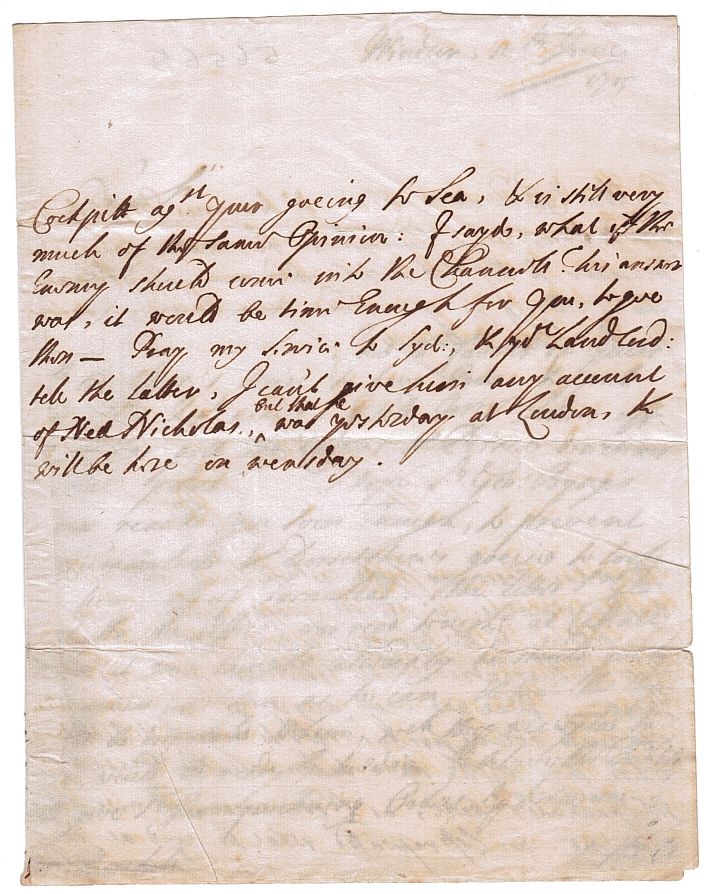 Cockpitt agst. your goeing to Sea, & is still very
much of the same Opinion: I sayd, what if the
Enemy should come into the Channell? his answer
was, it would be time Enough for you, to goe
then — Pray my Service to Syd:, & yr Landlord:
tell the latter, I can't give him any account
of Ned Nicholas, but that he was yesterday at London, &
will be here on wensday.